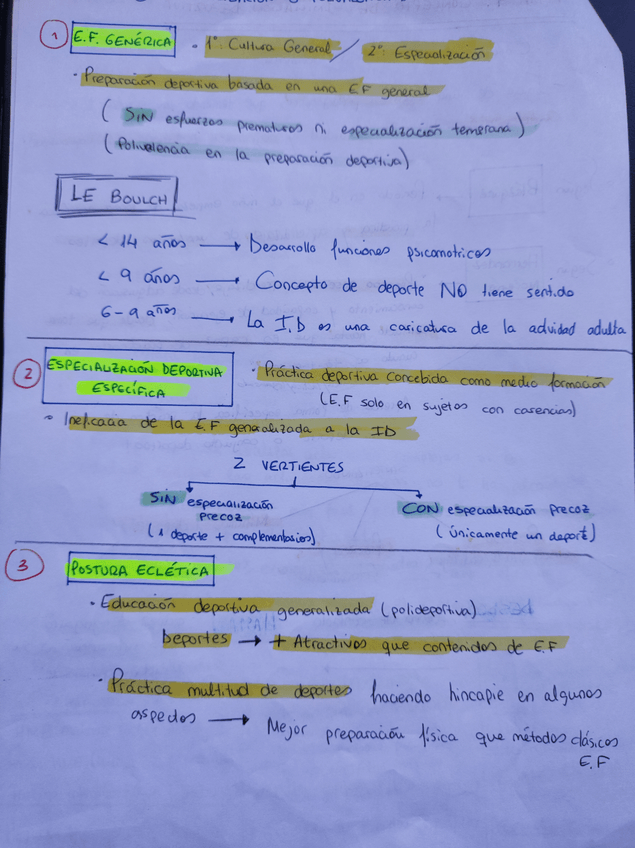 1 E.F. GENÉRICA · 1º: Cultura General / 2º: Especialización
· Preparación deportiva basada en una EF general
( SIN esfuerzos prematuros ni especialización temprana)
(Polivalencia en la preparación deportiva)
LE BOULCH
< 14 años → Desarrollo funciones psicomotrices
< 9 años → Concepto de deporte NO tiene sentido
6-9 años → La I.D es una caricatura de la actividad adulta
2 ESPECIALIZACIÓN DEPORTIVA ESPECÍFICA
· Práctica deportiva concebida como medio formación
(E.F solo en sujetos con carencias)
· Ineficacia de la E.F generalizada a la ID
2 VERTIENTES
SIN especialización precoz
(1 deporte + complementarios)
CON especialización precoz
(únicamente un deporte)
3 POSTURA ECLÉTICA
· Educación deportiva generalizada (polideportiva)
Deportes → + Atractivos que contenidos de E.F
· Práctica multitud de deportes haciendo hincapie en algunos
aspectos → Mejor preparación física que métodos clásicos
E.F